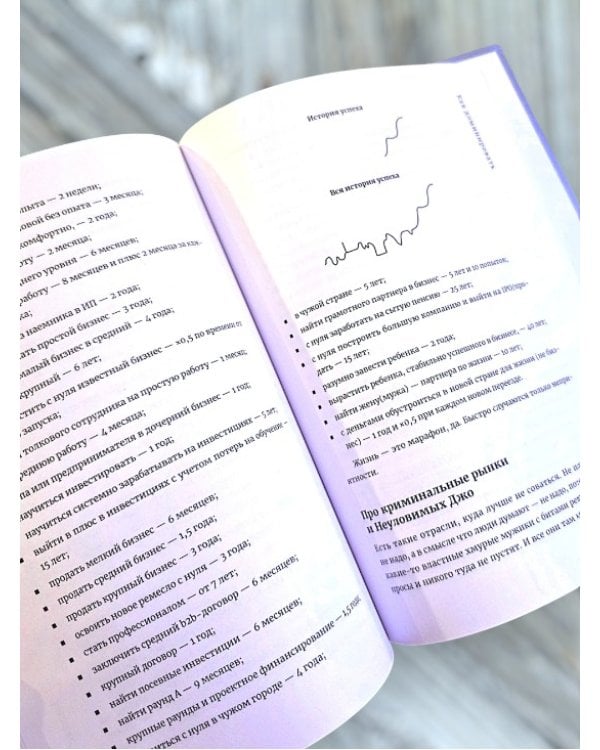 опыта — 2 недели;
овой без опыта — 3 месяца;
комфортно, — 2 года;
оту — 2 месяца;
него уровня — 6 месяцев;
работу — 8 месяцев и плюс 2 месяца за каж-
ка;
з наемника в ИП — 2 года;
ать простой бизнес — 3 года;
малый бизнес в средний — 4 года;
крупный — 6 лет;
стить с нуля известный бизнес — ×0,5 по времени от
запуска;
толкового сотрудника на простую работу — 1 месяц;
реднюю работу — 4 месяца;
па или предпринимателя в дочерний бизнес — 1 год;
научиться инвестировать — 1 год;
научиться системно зарабатывать на инвестициях — 5 лет;
выйти в плюс в инвестициях с учетом потерь на обучении —
15 лет;
продать мелкий бизнес — 6 месяцев;
продать средний бизнес — 1,5 года;
продать крупный бизнес — 3 года;
освоить новое ремесло с нуля — 3 года;
стать профессионалом — от 7 лет;
заключить средний b2b-договор — 6 месяцев;
крупный договор — 1 год;
найти посевные инвестиции — 6 месяцев;
найти раунд А — 9 месяцев;
крупные раунды и проектное финансирование — 1,5 года;
иться с нуля в чужом городе — 4 года;
как доминировать
История успеха
Вся история успеха
в чужой стране — 5 лет;
найти грамотного партнера в бизнес — 5 лет и 10 попыток;
с нуля заработать на сытую пенсию — 25 лет;
с нуля построить большую компанию и выйти на IPO/про-
дать — 15 лет;
разумно завести ребенка — 2 года;
вырастить ребенка, стабильно успешного в бизнесе, — 40 лет;
найти жену(мужа) — партнера по жизни — 10 лет;
с деньгами обустроиться в новой стране для жизни (не биз-
нес) — 1 год и ×0,5 при каждом новом переезде.
Жизнь — это марафон, да. Быстро случаются только непри-
ятности.
Про криминальные рынки
и Неуловимых Джо
Есть такие отрасли, куда лучше не соваться. Не
не надо, а в смысле что люди думают — не надо,
какие-то властные хмурые мужики с битами
просы и никого туда не пустят. И все они там